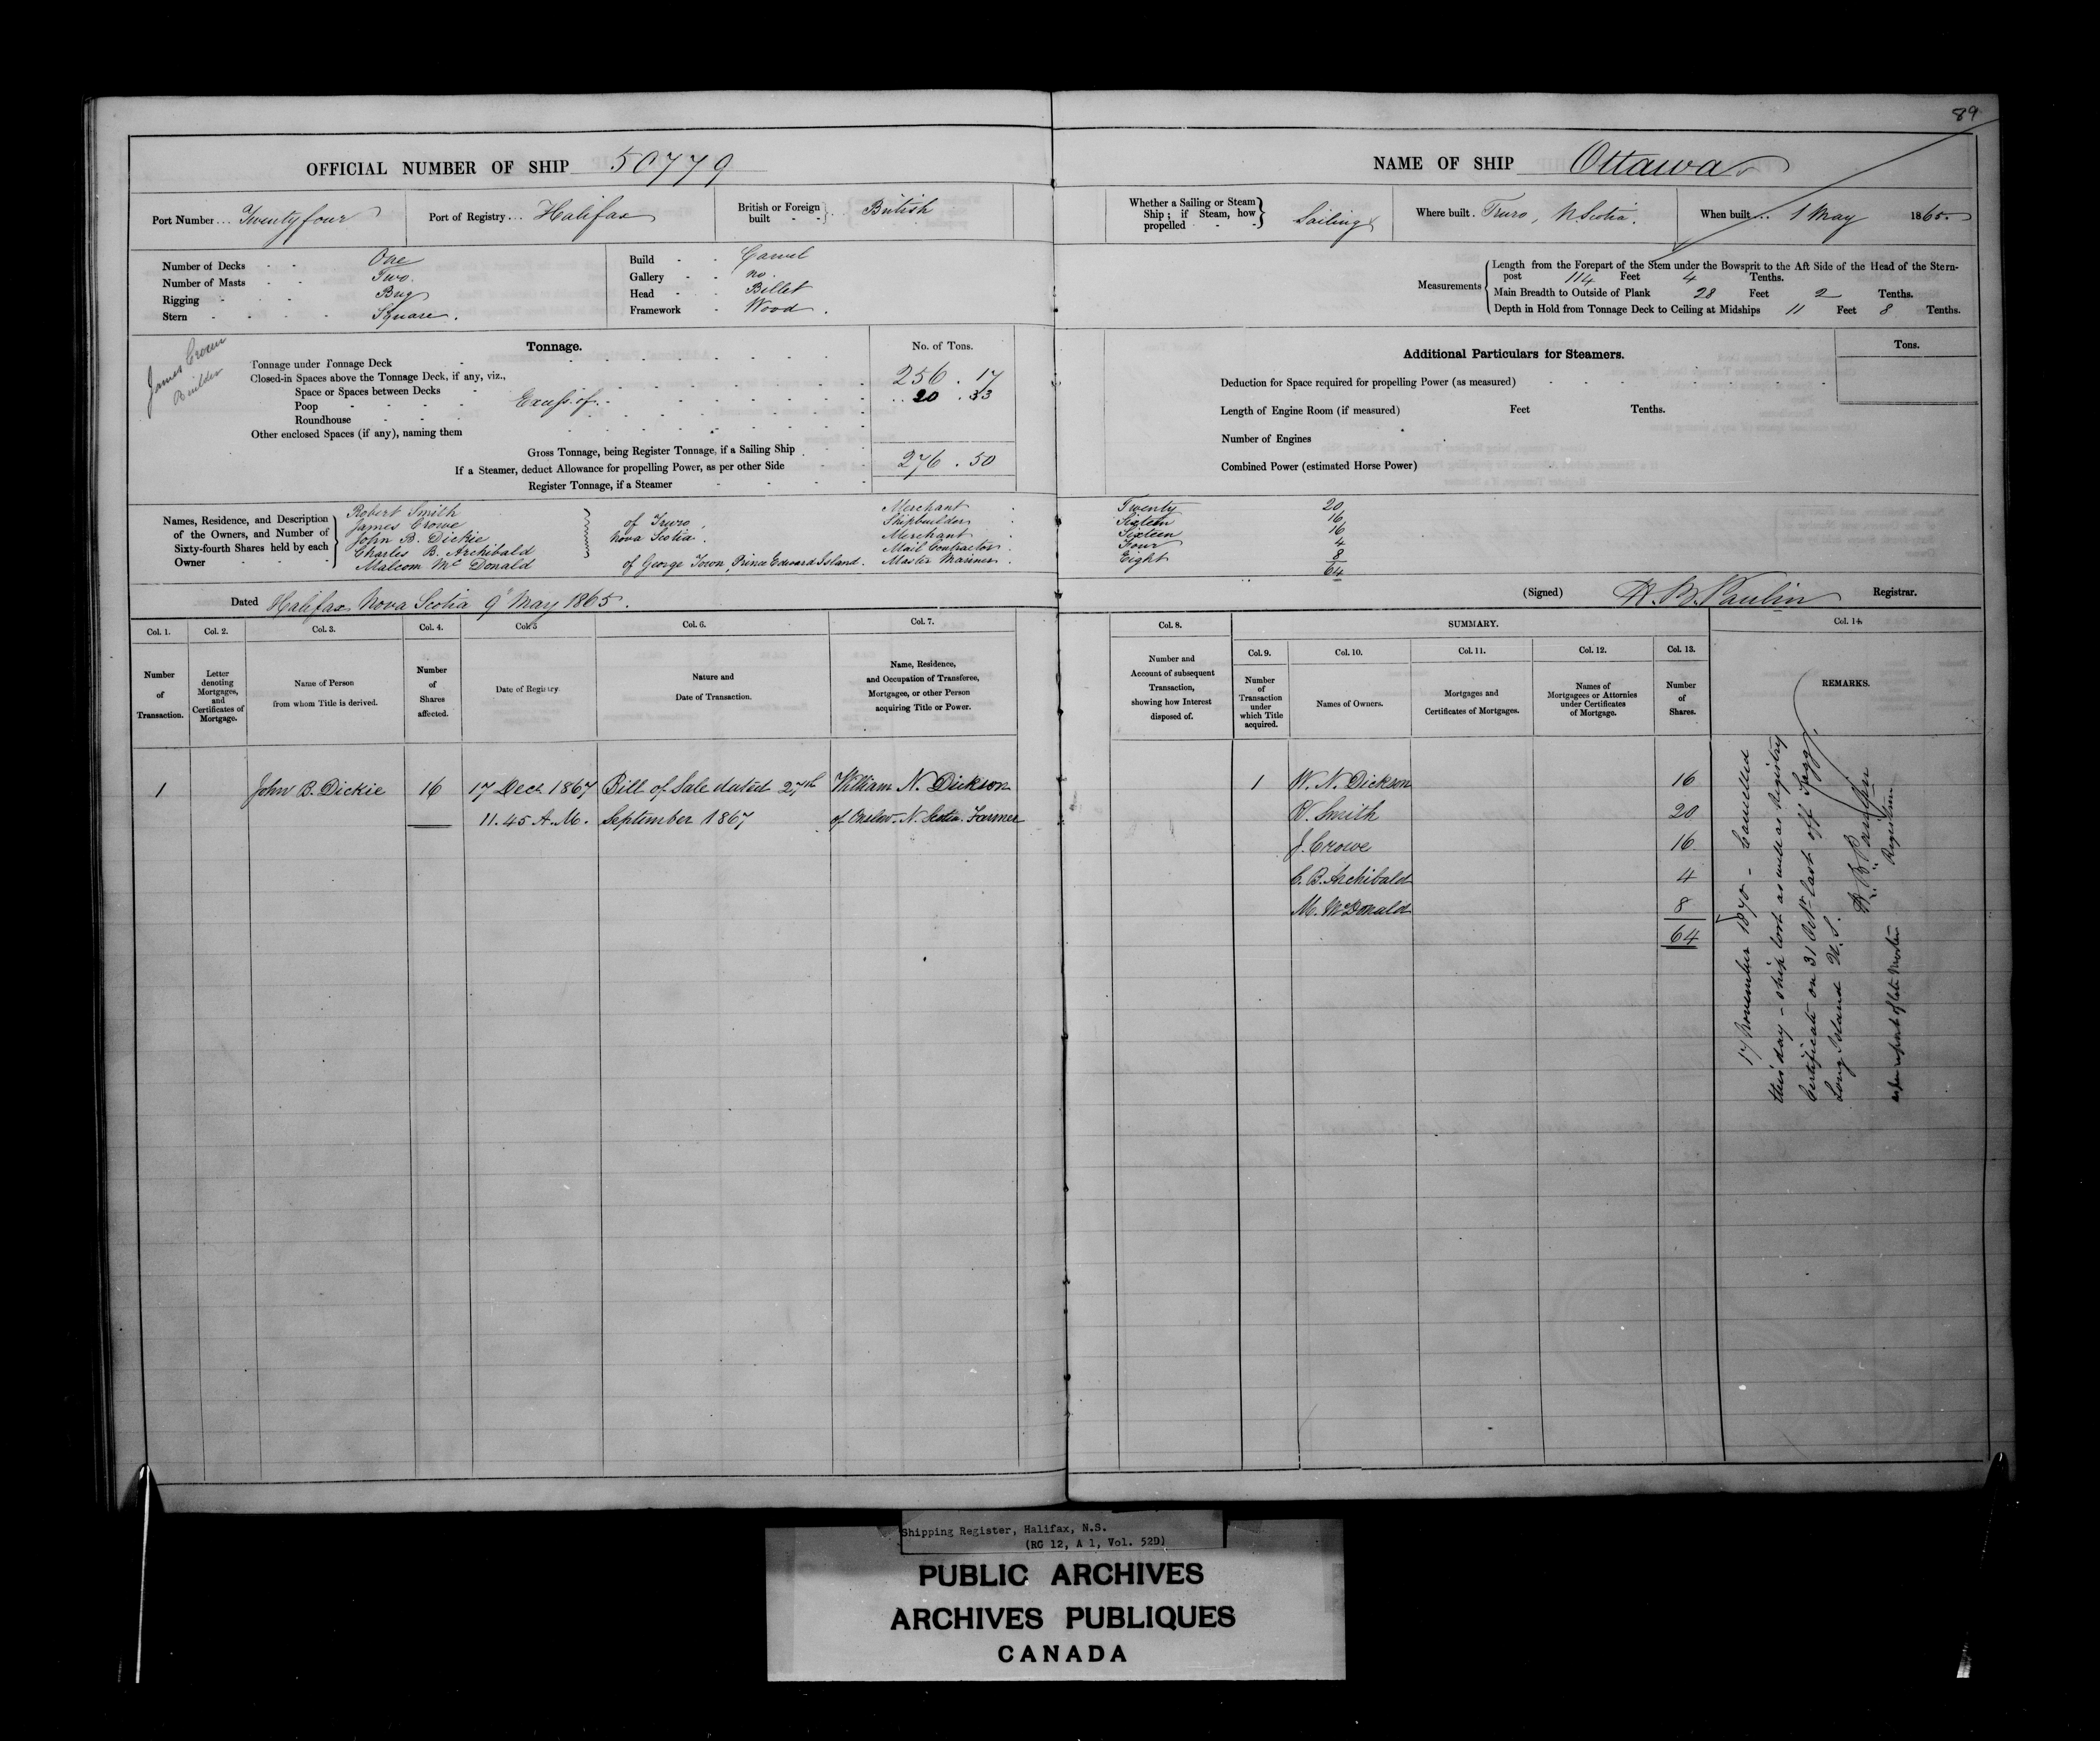 89
OFFICIAL NUMBER OF SHIP 50779
Port Number... Twenty four
Port of Registry... Halifax
British or Foreign built British
Number of Decks One
Number of Masts Two
Rigging Brig
Stern Square.
Build Carvel
Gallery no.
Head Billet
Framework Wood.
James Crowe
Builder
Tonnage. No. of Tons.
Tonnage under Tonnage Deck 256.17
Closed-in Spaces above the Tonnage Deck, if any, viz.,
Space or Spaces between Decks
Poop Excess of 20.33
Roundhouse
Other enclosed Spaces (if any), naming them
Gross Tonnage, being Register Tonnage, if a Sailing Ship 276.50
If a Steamer, deduct Allowance for propelling Power, as per other Side
Register Tonnage, if a Steamer
NAME OF SHIP Ottawa
Whether a Sailing or Steam Ship; if Steam, how propelled Sailing
Where built. Truro, N. Scotia.
When built... 1 May 1865
Measurements
Length from the Forepart of the Stem under the Bowsprit to the Aft Side of the Head of the Stern-
post 114 Feet 4 Tenths.
Main Breadth to Outside of Plank 28 Feet 2 Tenths.
Depth in Hold from Tonnage Deck to Ceiling at Midships 11 Feet 8 Tenths.
Additional Particulars for Steamers.
Tons.
Deduction for Space required for propelling Power (as measured)
Length of Engine Room (if measured) Feet Tenths.
Number of Engines
Combined Power (estimated Horse Power)
Names, Residence, and Description of the Owners, and Number of Sixty-fourth Shares held by each Owner
Robert Smith Merchant Twenty 20
James Crowe of Truro, Shipbuilder Sixteen 16
John B. Dickie Nova Scotia. Merchant Sixteen 16
Charles B. Archibald Mail Contractor Four 4
Malcom McDonald of George Town, Prince Edward Island. Master Mariner. Eight 8
64
Dated Halifax Nova Scotia 9 May 1865.
(Signed) Registrar.
Col. 1. Col. 2. Col. 3. Col. 4. Col. 5 Col. 6. Col. 7.
Number of Transaction.
Letter denoting Mortgages, and Certificates of Mortgage.
Name of Person from whom Title is derived.
Number of Shares affected.
Date of Registry.
Nature and Date of Transaction.
Name, Residence, and Occupation of Transferee, Mortgagee, or other Person acquiring Title or Power.
1 John B. Dickie 16 17 Decr. 1867 Bill of Sale dated 27th William N. Dickson
11.45 A.M. September 1867 of Onslow N. Scotia Farmer
Col. 8. SUMMARY. Col. 14.
Col. 9. Col. 10. Col. 11. Col. 12. Col. 13.
Number and Account of subsequent Transaction, showing how Interest disposed of.
Number of Transaction under which Title acquired.
Names of Owners.
Mortgages and Certificates of Mortgages.
Names of Mortgagees or Attornies under Certificates of Mortgage.
Number of Shares.
REMARKS.
1 W. N. Dickson 16
R. Smith 20
J. Crowe 16
C. B. Archibald 4
M. McDonald 8
64
17 November 1870 - Cancelled
this day - ship lost as well as Registry
Certificate on 31 Octr last off
Long Island U.S.
Registrar
as per report of late Master
Shipping Register, Halifax, N.S.
(RG 12, A 1, Vol. 52D)
PUBLIC ARCHIVES
ARCHIVES PUBLIQUES
CANADA